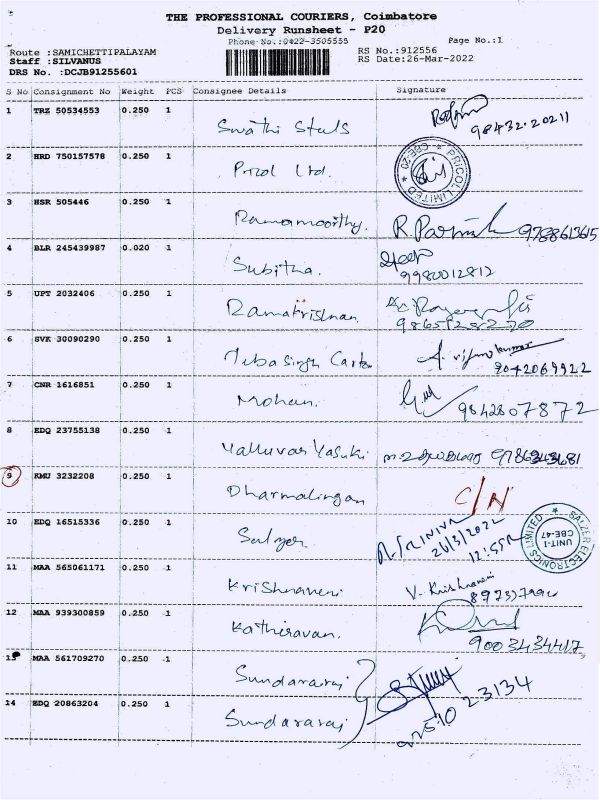 THE PROFESSIONAL COURIERS, Coimbatore
Delivery Runsheet - P20
Phone No.:0422-3505555
Page No.:1
Route :SAMICHETTIPALAYAM
Staff :SILVANUS
DRS No. :DCJB91255601
RS No.:912556
RS Date:26-Mar-2022
S No Consignment No Weight PCS Consignee Details Signature
1 TRZ 50534553 0.250 1 Swathi Steels 98432-20211
2 HRD 750157578 0.250 1 Pricol Ltd. PRICOL LIMITED CBE-20
3 HSR 505446 0.250 1 Ramamoorthy. 9788613615
4 BLR 245439987 0.020 1 Subitha. 9980012812
5 UPT 2032406 0.250 1 Ramakrishnan.
6 SVK 30090290 0.250 1 9042069922
7 CNR 1616851 0.250 1 Mohan. 9842807872
8 EDQ 23755138 0.250 1 Valluvar Vasuki
9 KMU 3232208 0.250 1 Dharmalingan C/N
10 EDQ 16515336 0.250 1 Salzer 26/3/2022 12:55 SALZER ELECTRONICS LIMITED UNIT-1 CBE-47
11 MAA 565061171 0.250 1 Krishnaveni V. Krishnaveni
12 MAA 939300859 0.250 1 Kathiravan. 9003434417
13 MAA 561709270 0.250 1 Sundararaj
14 EDQ 20863204 0.250 1 Sundararaj 92510 23134